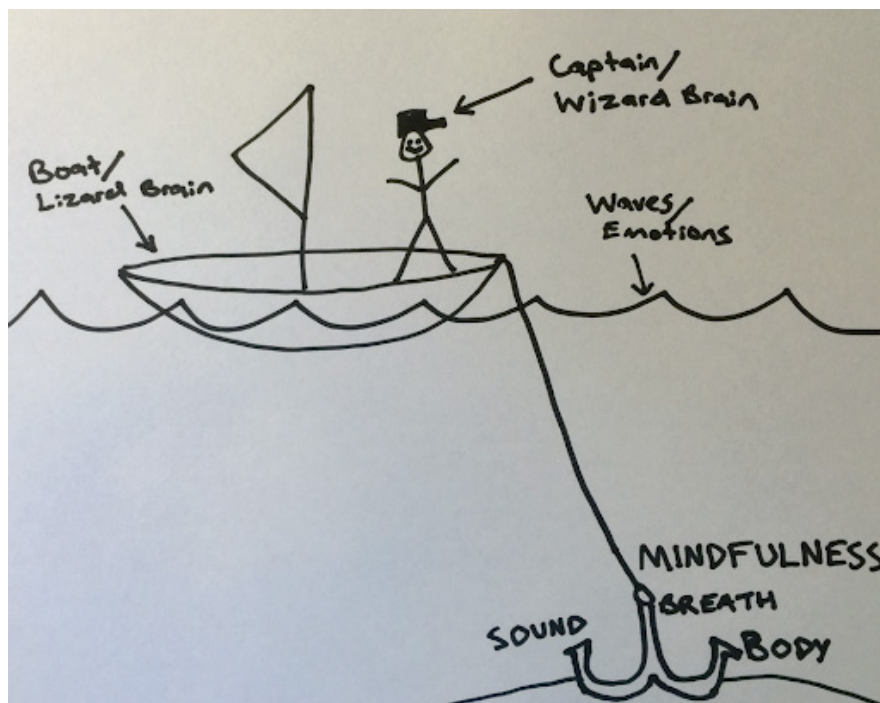 Captain/
Wizard Brain
Boat/
Lizard Brain
Waves/
Emotions
MINDFULNESS
BREATH
SOUND
BODY